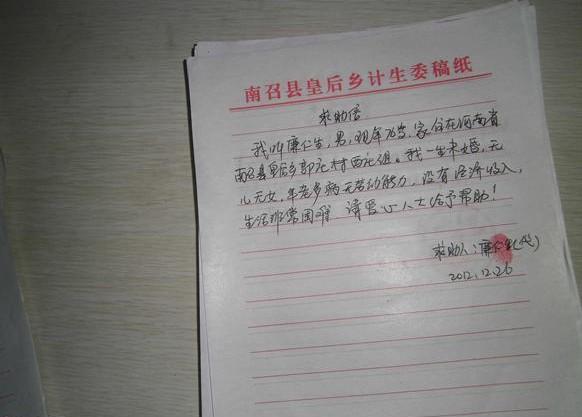 南召县皇后乡计生委稿纸
求助信
我叫廉仁生,男,现年76岁,家住在河南省
南召县皇后乡郭庄村西庄组。我一生未婚,无
儿无女,年老多病无劳动能力,没有经济收入,
生活非常困难 请爱心人士给予帮助!
求助人:廉仁生(代)
2012.12.26